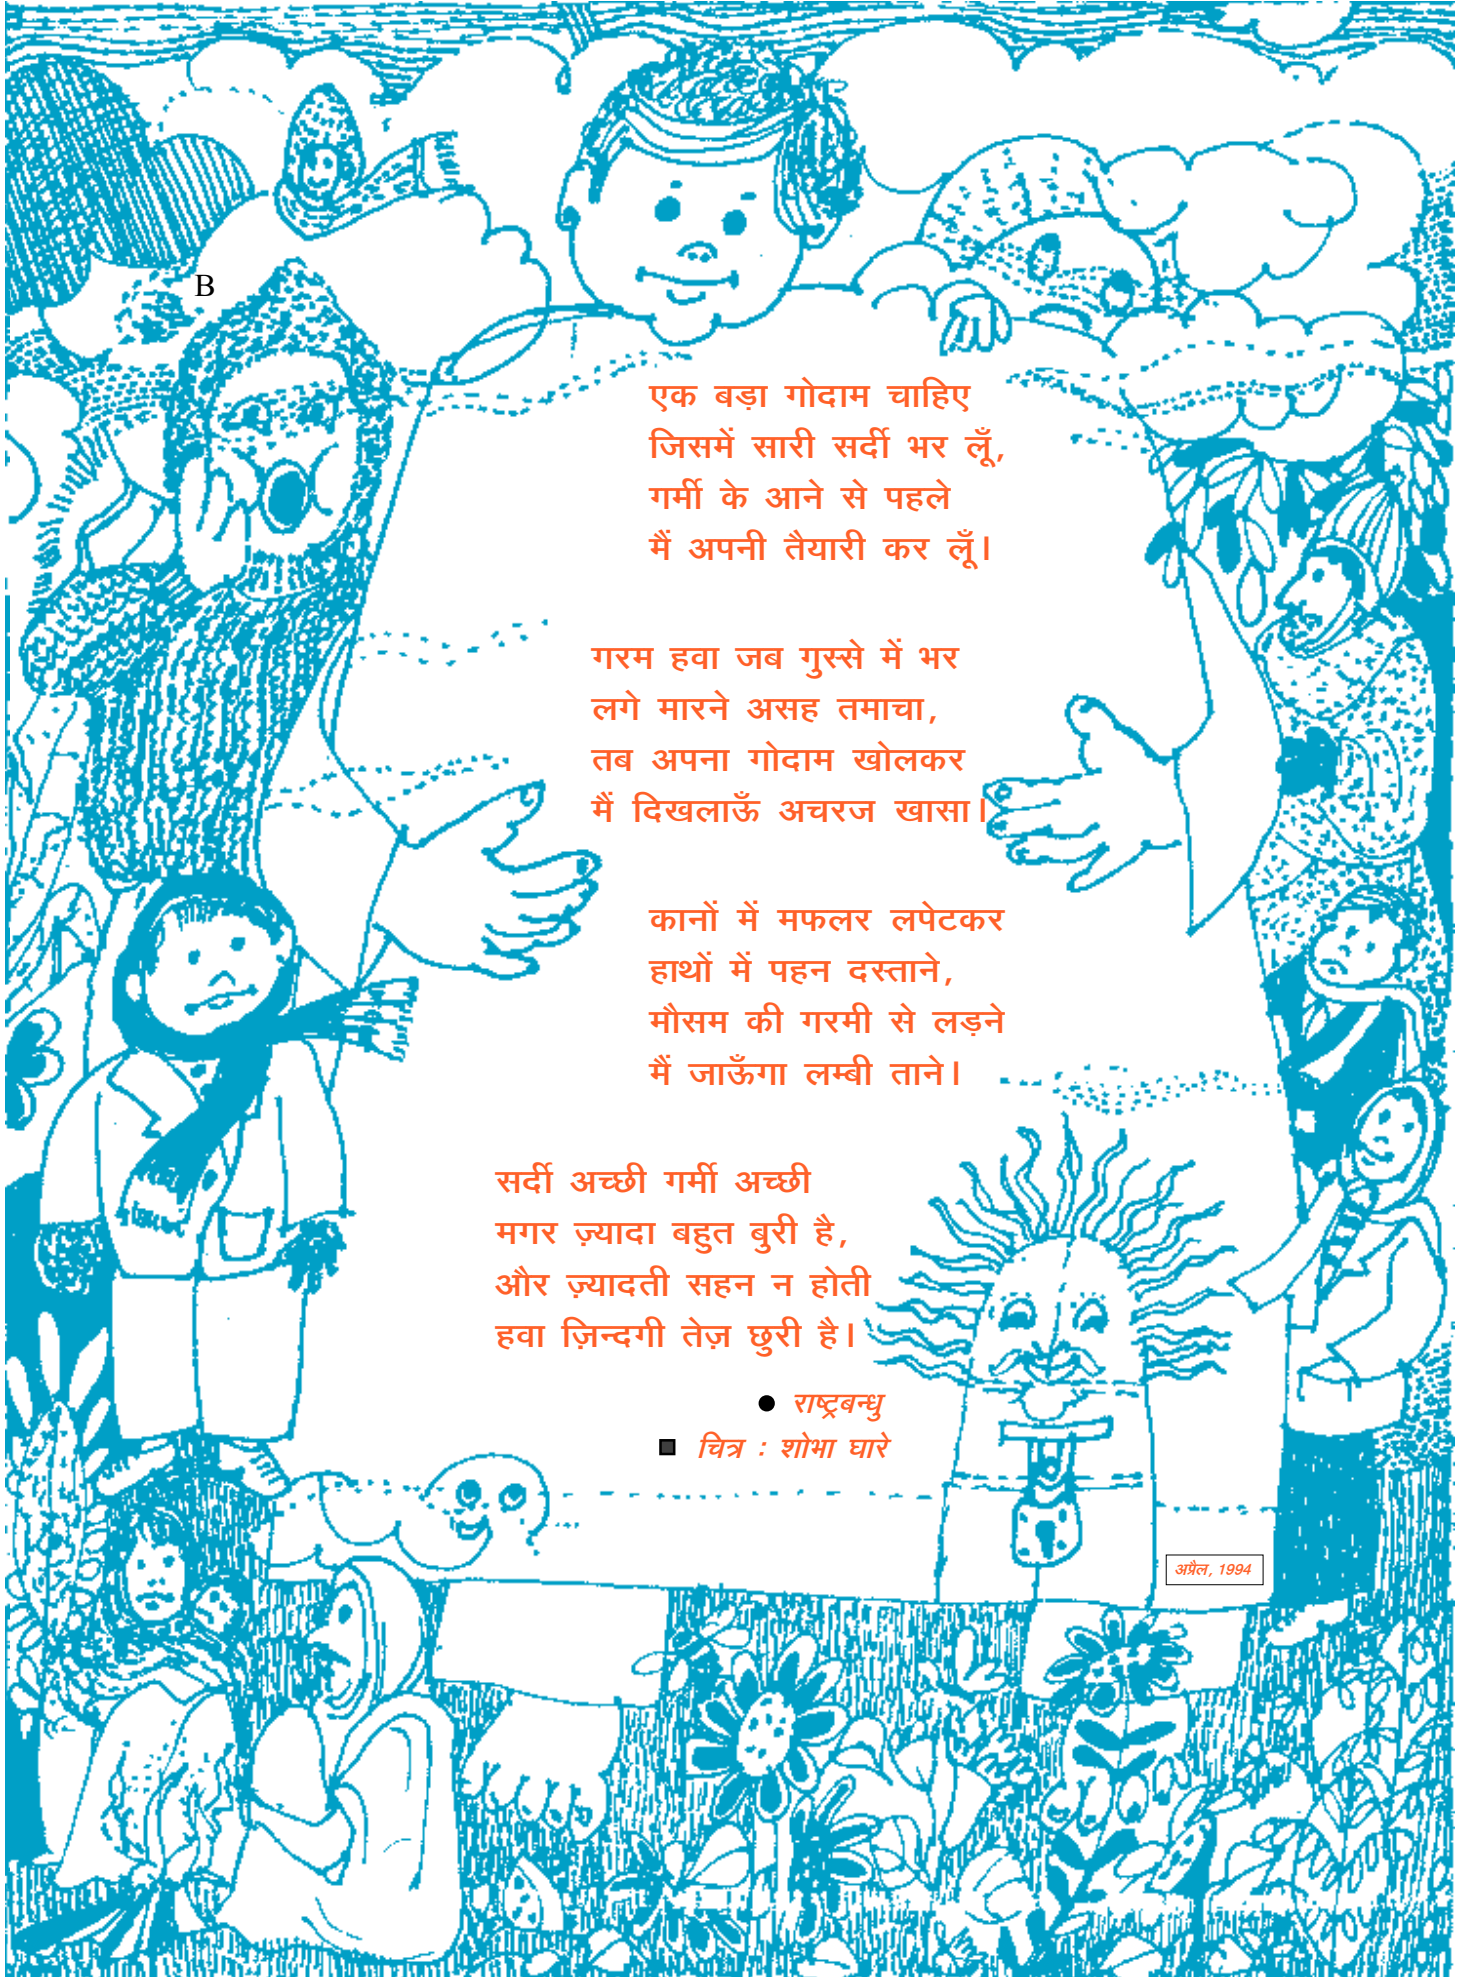 B
एक बड़ा गोदाम चाहिए
जिसमें सारी सर्दी भर लूँ,
गर्मी के आने से पहले
मैं अपनी तैयारी कर लूँ।
गरम हवा जब गुस्से में भर
लगे मारने असह तमाचा,
तब अपना गोदाम खोलकर
मैं दिखलाऊँ अचरज खासा।
कानों में मफलर लपेटकर
हाथों में पहन दस्ताने,
मौसम की गरमी से लड़ने
मैं जाऊँगा लम्बी ताने।
सर्दी अच्छी गर्मी अच्छी
मगर ज़्यादा बहुत बुरी है,
और ज़्यादती सहन न होती
हवा ज़िन्दगी तेज़ छुरी है।
● राष्ट्रबन्धु
■ चित्र : शोभा घारे
अप्रैल, 1994